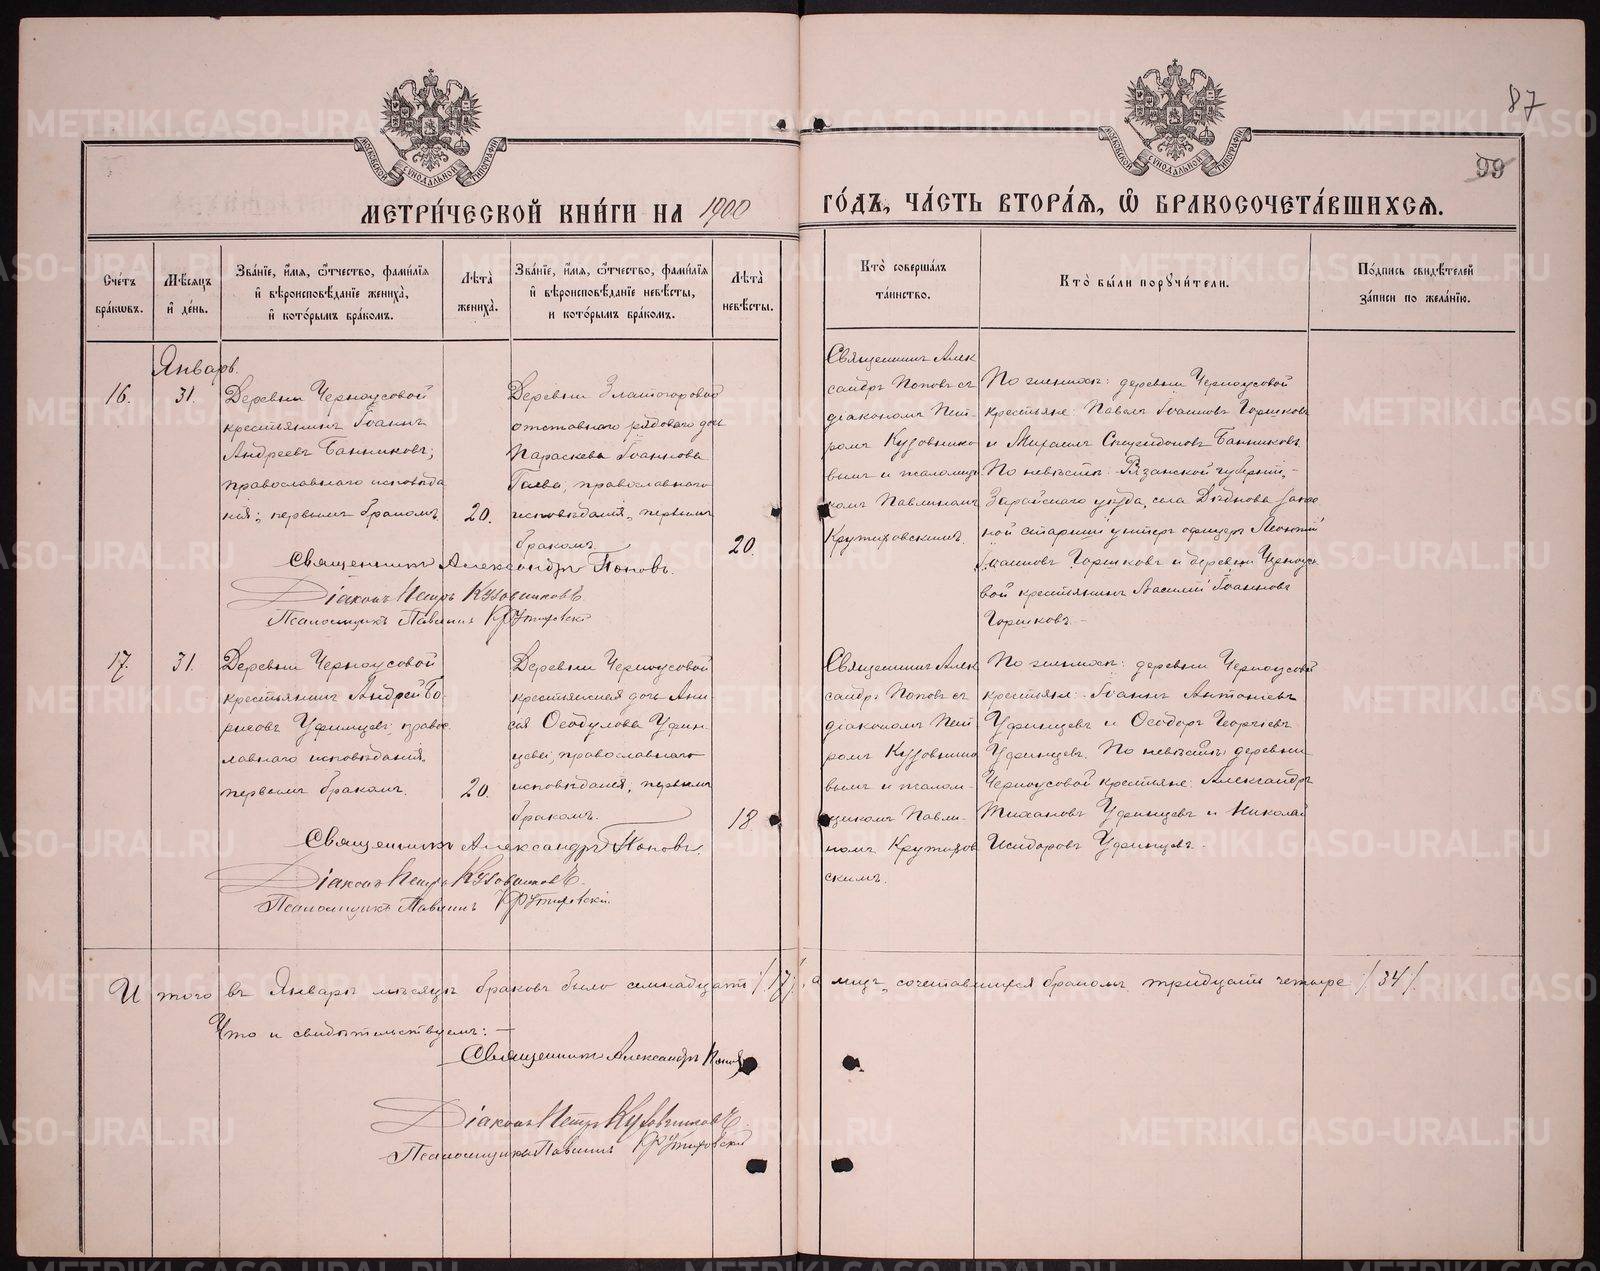 87
99
МОСКОВСКОЙ СѴНОДАЛЬНОЙ ТИПОГРАФІИ
МОСКОВСКОЙ СѴНОДАЛЬНОЙ ТИПОГРАФІИ
МЕТРИ́ЧЕСКОЙ КНИ́ГИ НА 1900
ГО́ДЪ, ЧА́СТЬ ВТОРА́Я, Ѽ БРАКОСОЧЕТА́ВШИХСЯ.
Сче́тъ бра́кѡвъ.
Мѣ́сяцъ и҆ де́нь.
Зва́нїе, и҆́мя, ѻ҆́тчество, фами́лїя и҆ вѣроисповѣ́данїе жениха̀, и҆ кото́рымъ бра́комъ.
Лѣта̀ жениха̀.
Зва́нїе, и҆́мя, ѻ҆́тчество, фами́лїя и҆ вѣроисповѣ́данїе невѣ́сты, и кото́рымъ бра́комъ.
Лѣта̀ невѣ́сты.
Кто̀ соверша́лъ та́инство.
Кто̀ бы́ли порꙋчи́тели.
По́дпись свидѣ́телей за́писи по жела́нїю.
Январь.
16.
31.
Деревни Черноусовой
крестьянинъ Іоаннъ
Андреевъ Банниковъ;
православнаго исповѣда
нія; первымъ бракомъ.
20.
Деревни Златогоровой
отставнаго рядоваго дочь
Параскева Іоаннова
православнаго
исповѣданія, первымъ
бракомъ.
20.
Священникъ Алек
сандръ Поповъ съ
діакономъ Пет-
ромъ Кузовнико
вымъ и псаломщи
комъ Павлиномъ
Крутиховскимъ.
По женихѣ: деревни Черноусовой
крестьяне: Павелъ Іоанновъ Горшковъ
и Михаилъ Спиридоновъ Банниковъ
По невѣстѣ: Рязанской губерніи,
Зарайскаго уѣзда, села Дѣднова запас
ной старшій унтеръ офицеръ Леонтій
Іоанновъ Горшковъ и деревни Черноусо
вой крестьянинъ Василій Іоанновъ
Горшковъ.
Священникъ Александръ Поповъ.
Діаконъ Петръ Кузовниковъ.
Псаломщикъ Павлинъ Крутиховскій
17.
31.
Деревни Черноусовой
крестьянинъ Андрей Бо
рисовъ Уфинцевъ, право
славнаго исповѣданія,
первымъ бракомъ.
20.
Деревни Черноусовой
крестьянская дочь Ани
сія Ѳеодулова Уфин
цева; православнаго
исповѣданія; первымъ
бракомъ.
18
Священникъ Алек
сандръ Поповъ съ
діакономъ Пет
ромъ Кузовнико
вымъ и псалом-
щикомъ Павли-
номъ Крутихов
скимъ.
По женихѣ: деревни Черноусовой
крестьяне: Іоаннъ Антоніевъ
Уфинцевъ и Ѳеодоръ Георгіевъ
Уфинцевъ. По невѣстѣ: деревни
Черноусовой крестьяне: Александръ
Тихановъ Уфинцевъ и Николай
Исидоровъ Уфинцевъ.
Священникъ Александръ Поповъ.
Діаконъ Петръ Кузовниковъ.
Псаломщикъ Павлинъ Крутиховскій.
Итого въ Январѣ мѣсяцѣ браковъ было семнадцать /17/, а лицъ, сочетавшихся бракомъ тридцать четыре /34/.
Что и свидѣтельствуемъ: —
Священникъ Александръ Поповъ
Діаконъ Петръ Кузовниковъ.
Псаломщикъ Павлинъ Крутиховскій
METRIKI.GASO-URAL.RU